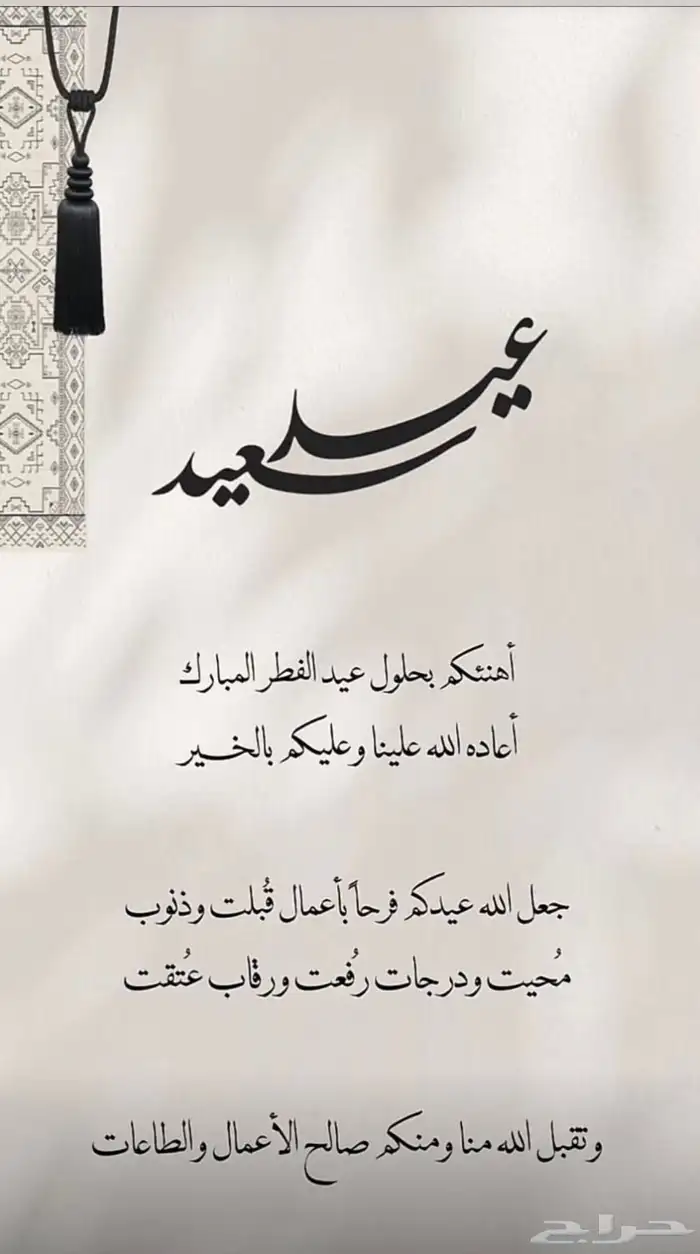 عيد
سعيد
أهنئكم بحلول عيد الفطر المبارك
أعاده الله علينا وعليكم بالخير
جعل الله عيدكم فرحاً بأعمال قُبلت وذنوب
مُحيت ودرجات رُفعت ورقاب عُتقت
وتقبل الله منا ومنكم صالح الأعمال والطاعات
حراج